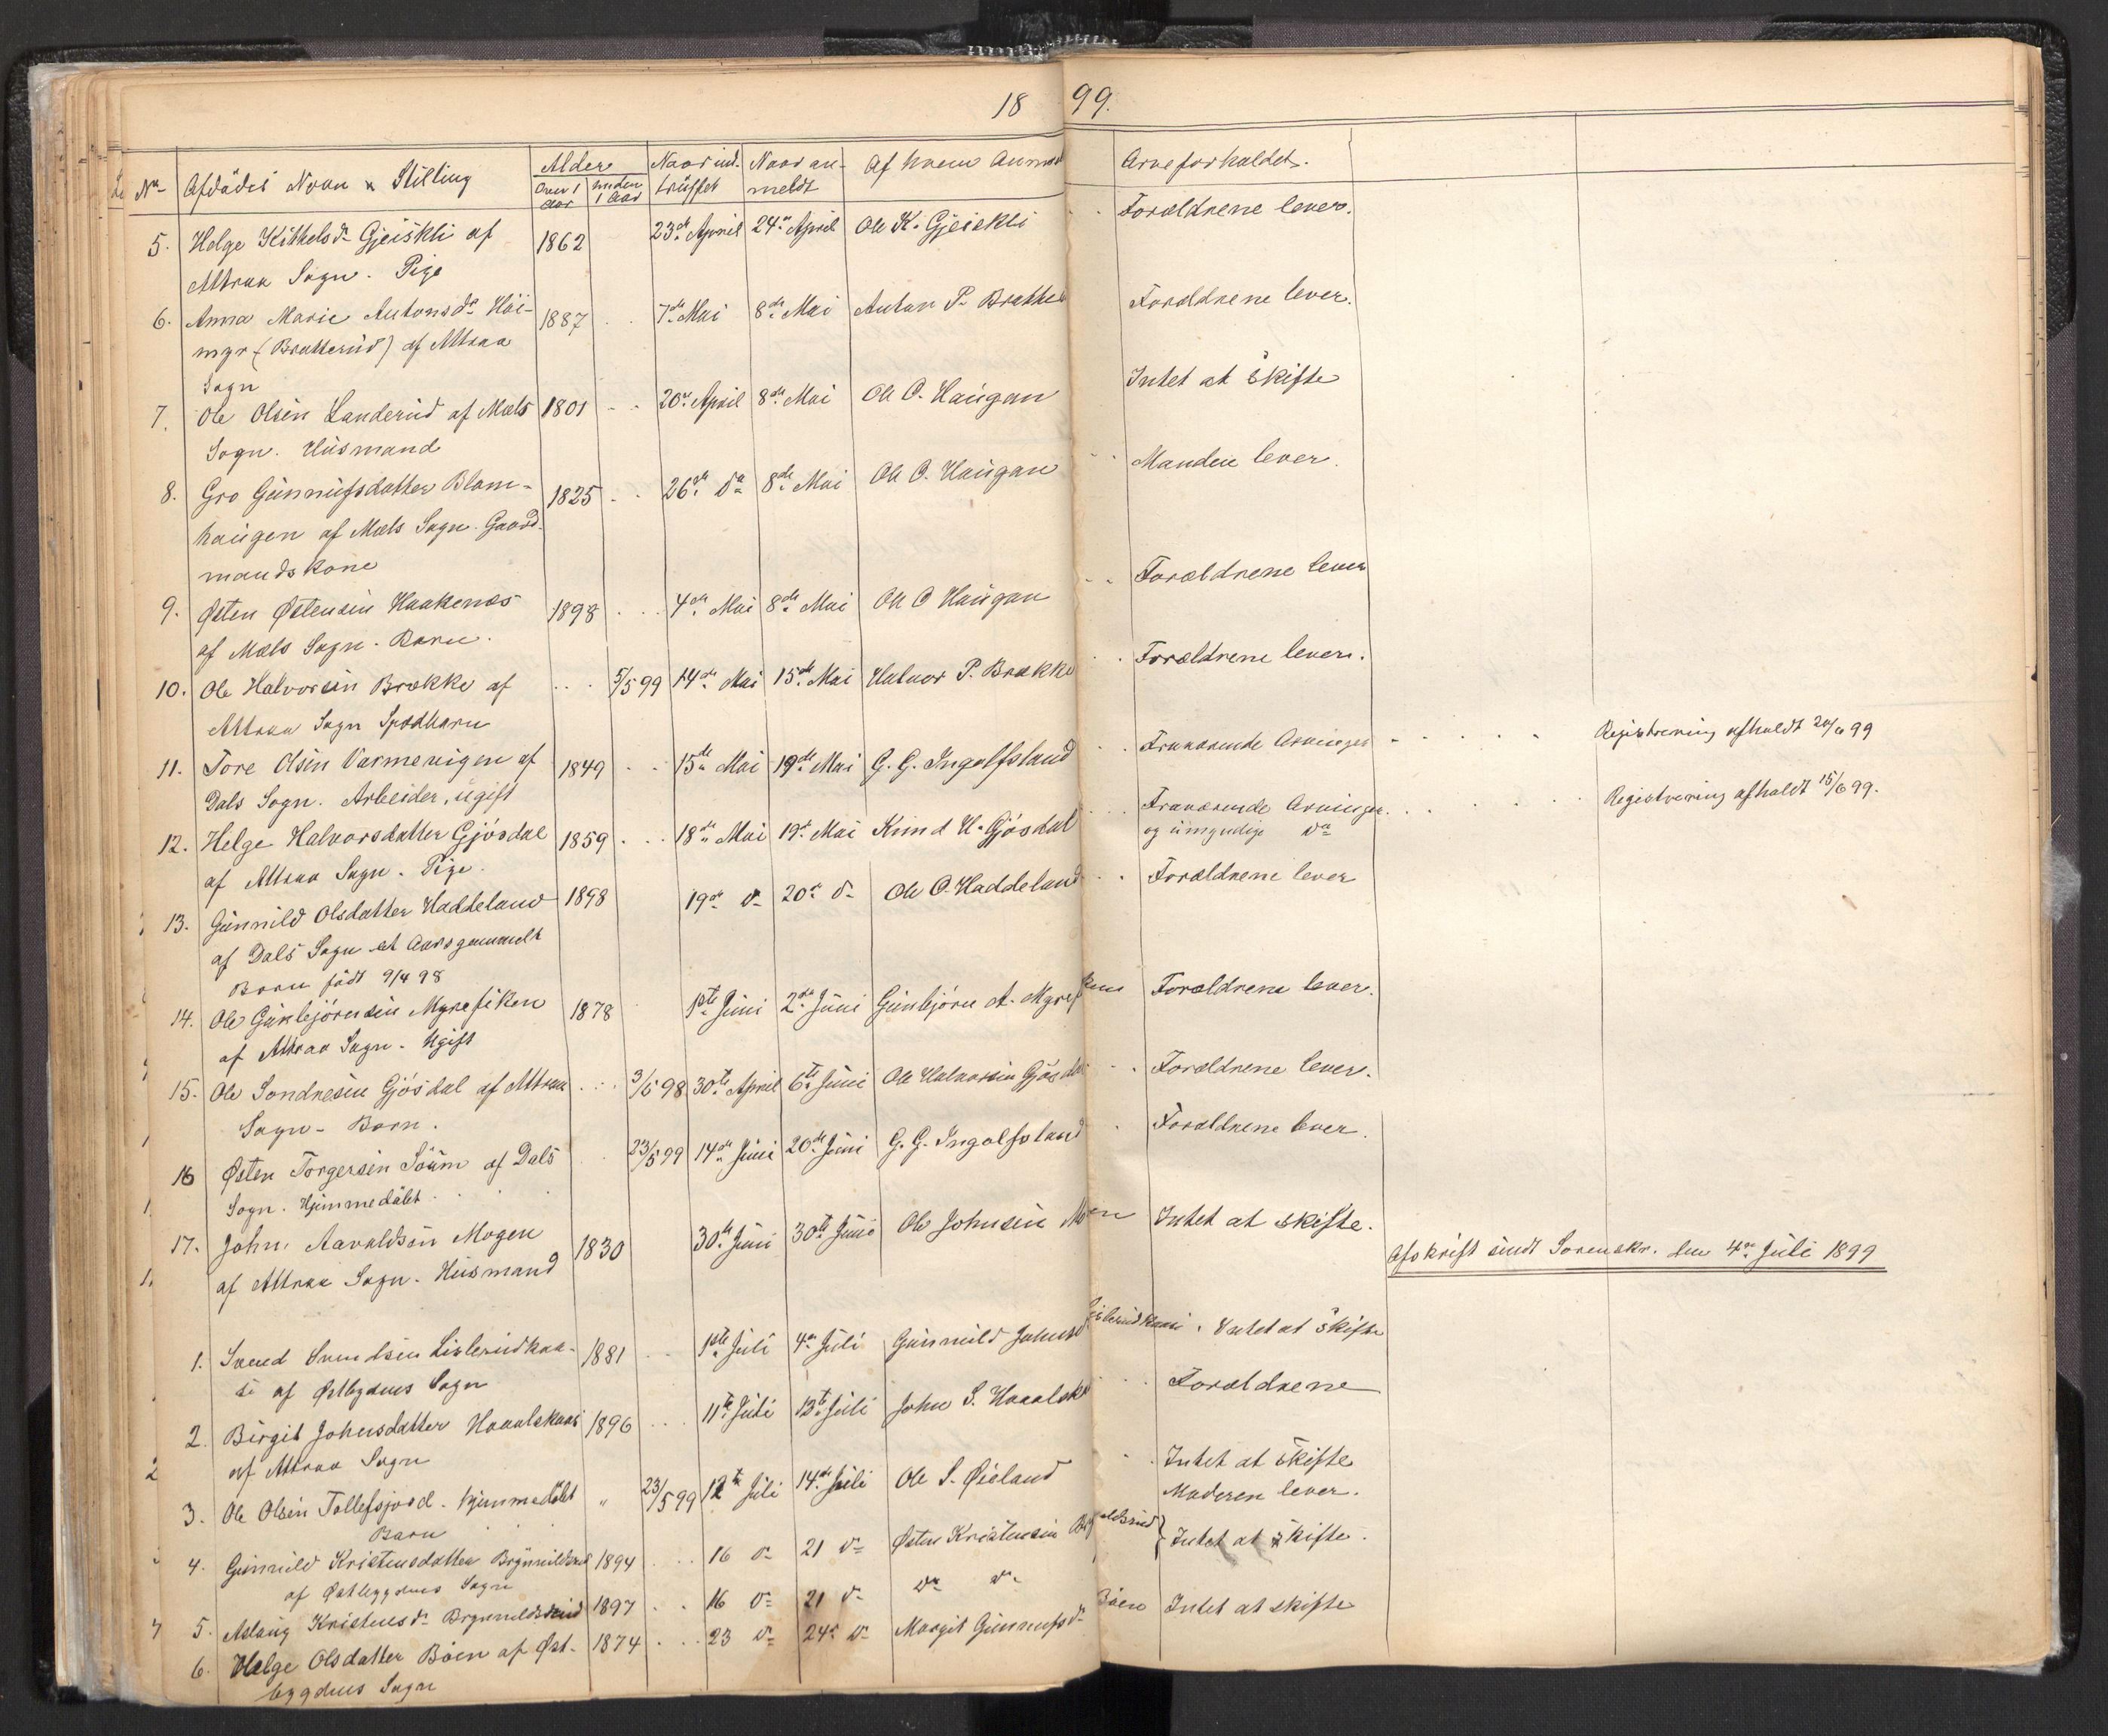 18 99.
No Afdødes Navn & Stilling Alder Naar ind- Naar an- Af hvem Anmel Arveforholdet.
Over 1 Aar under 1 Aar truffet meldt
5. Helge Kittelsdr Gjeiskli af 1862 23de April 24de April Ole K. Gjeiskli Forældrene lever.
Attraa Sogn. Pige
6. Anna Marie Antonsdr Høi- 1887 7de Mai 8de Mai Anton P. Bratte Forældrene lever.
myr (Bratterud) af Attraa
Sogn
7. Ole Olsen Landerud af Mæls 1801 20de April 8de Mai Ole O. Haugan Intet at skifte
Sogn. Husmand
8. Gro Gunnufsdatter Blom- 1825 26de do 8de Mai Ole O. Haugan Manden lever.
haugen af Mæls Sogn. Gaard-
mandskone
9. Østen Østensen Haakenæs 1898 4de Mai 8de Mai Ole O Haugan Forældrene lever
af Mæls Sogn. Barn.
10. Ole Halvorsen Brække af 5/5 99 14de Mai 15de Mai Halvor P. Brække Forældrene lever.
Attraa Sogn Spædbarn
11. Tore Olsen Varmevigen af 1849 15de Mai 19de Mai G. G. Ingolfsland Fraværende Arvinger Registrering afholdt 20/6 99
Dals Sogn. Arbeider, ugift
12. Helge Halvorsdatter Gjøsdal 1859 18de Mai 19de Mai Knud H. Gjøsdal Fraværende Arvinger Registrering afholdt 15/6 99.
af Attraa Sogn. Pige. og umyndige do
13. Gunnild Olsdatter Haddeland 1898 19de do 20de do Ole O. Haddeland Forældrene lever
af Dals Sogn et Aars gammelt
Barn født 9/4 98
14. Ole Gunbjørnsen Myrefiken 1878 1ste Juni 2den Juni Gunbjørn A. Myrefiken Forældrene lever.
af Attraa Sogn. Ugift
15. Ole Sondresen Gjøsdal af Attraa 3/5 98 30te April 6te Juni Ole Halvorsen Gjøsdal Forældrene lever.
Sogn - Barn.
16 Østen Torgersen Søum af Dals 23/5 99 14de Juni 20de Juni G. G. Ingolfsland Forældrene lever.
Sogn. Hjemmedøbt
17. John Aavaldsøn Mogen 1830 30te Juni 30te Juni Ole Johnsen Moen Intet at skifte.
af Attraa Sogn. Husmand
Afskrift sendt Sorenskr. den 4de Juli 1899
1. Svend Svendsen Lislerudkaa- 1881 1ste Juli 4de Juli Gunnild Johnsd Lislerudkaasi. Intet at skifte
si af Østbygdens Sogn
2. Birgit Johnsdatter Haaalskaas 1896 11te Juli 13te Juli John S. Haaalsk Forældrene
af Attraa Sogn
3. Ole Olsen Tollefsjord. Hjemmedøbt " 23/5 99 12te Juli 14de Juli Ole S. Øieland Intet at skifte
Barn Moderen lever.
4. Gunnild Kristensdatter Brynnildsrud 1894 16 do 21 do Østen Kristensen Brynnildsrud } Intet at skifte.
af Østbygdens Sogn
5. Aslaug Kristensdr Brynnildsrud 1897 16 do 21 do do do
6. Helge Olsdatter Bøen af Øst- 1874 23 do 24de do Margit Gunnufsdr Bøen Intet at skifte
bygdens Sogn